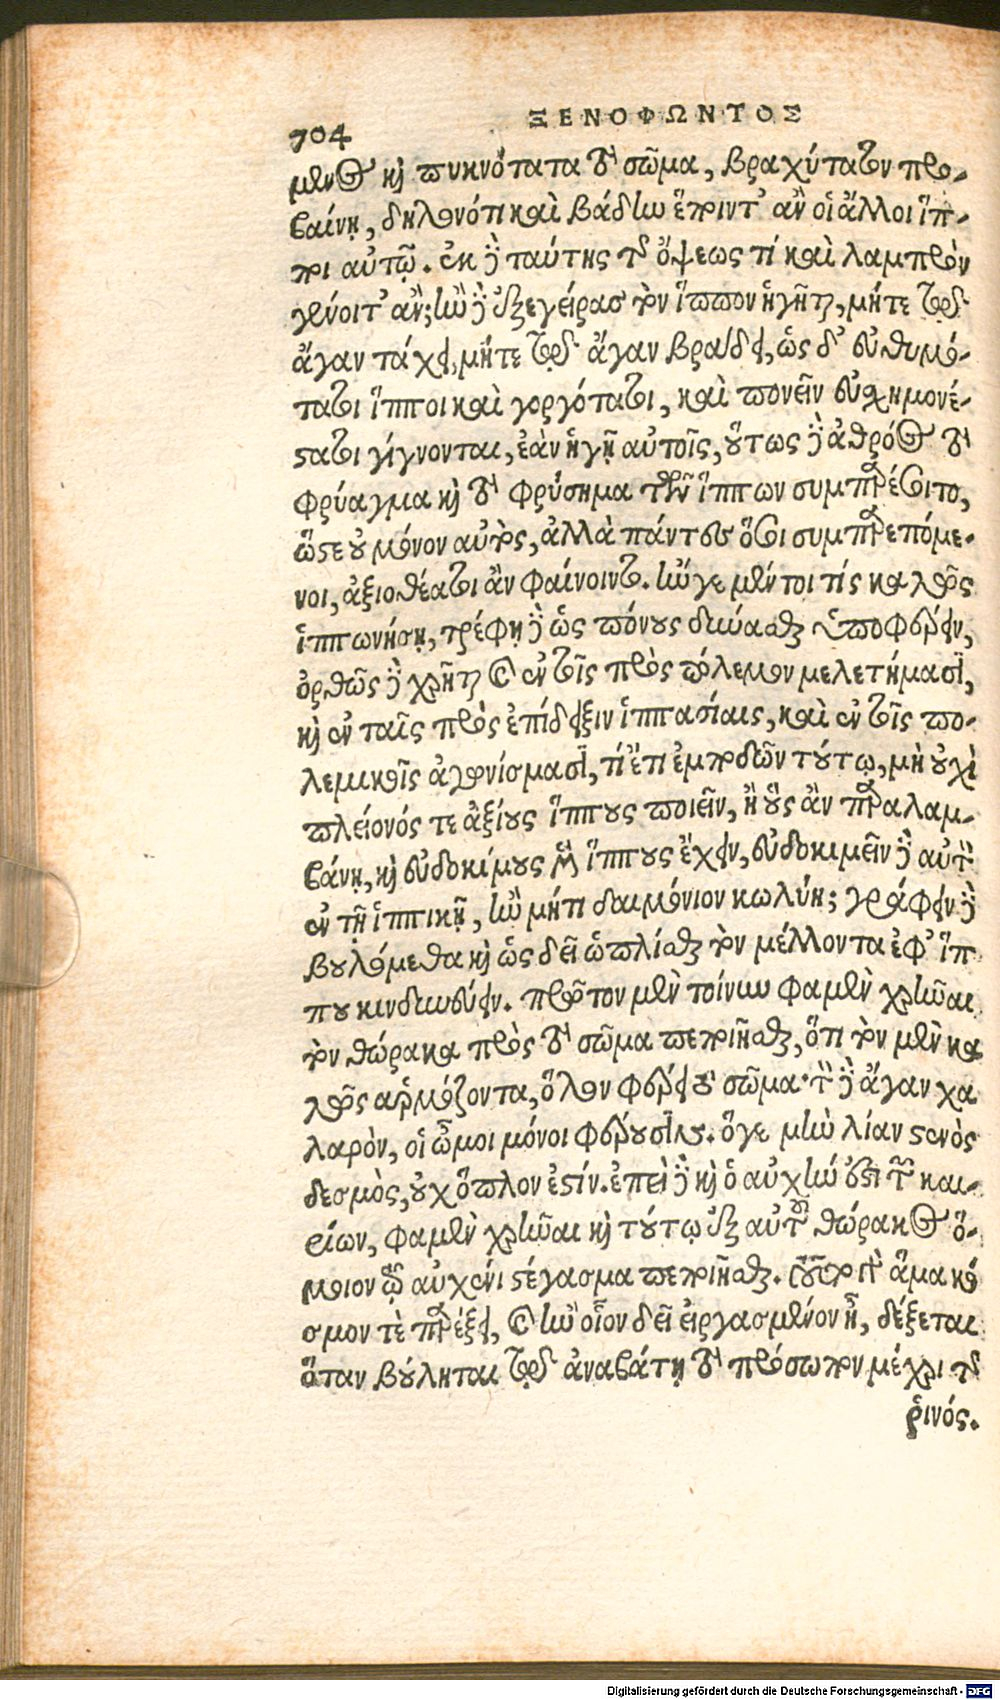 704
ΞΕΝΟΦΩΝΤΟΣ
μενος καὶ πυκνότατα τὸ σῶμα, βραχύτατον προ-
βαίνῃ, δηλονότι καὶ βάδην ἕποιντ' ἂν οἱ ἄλλοι ἵπ-
ποι αὐτῷ. ἐκ δὲ ταύτης τῆς ὄψεως τί καὶ λαμπρὸν
γένοιτ' ἄν; ἢν δὲ ἐξεγείρας τὸν ἵππον ἡγῆται, μήτε τῷ
ἄγαν τάχει, μήτε τῷ ἄγαν βραδεῖ, ὡς δ' εὐθυμό-
τατοι ἵπποι καὶ γοργότατοι, καὶ πονεῖν εὐσχημονέ-
στατοι γίγνονται, ἐὰν ἡγῇ αὐτοῖς, οὕτως δὲ ἀθρόος τὸ
φρύαγμα καὶ τὸ φρύσημα τῶν ἵππων συμπαρέποιτο,
ὥστε οὐ μόνον αὐτὸς, ἀλλὰ πάντες ὅσοι συμπαρεπόμε-
νοι, ἀξιοθέατοι ἂν φαίνοιντο. ἤν γε μέντοι τίς καλῶς
ἱππωνήσῃ, τρέφῃ δὲ ὡς πόνους δύνασθαι ὑποφέρειν,
ὀρθῶς δὲ χρῆται καὶ ἐν τοῖς πρὸς πόλεμον μελετήμασι,
καὶ ἐν ταῖς πρὸς ἐπίδειξιν ἱππασίαις, καὶ ἐν τοῖς πο-
λεμικοῖς ἀγωνίσμασι, τί ἔτι ἐμποδὼν τούτῳ, μὴ οὐχὶ
πλείονός τε ἀξίους ἵππους ποιεῖν, ἢ οὓς ἂν παραλαμ-
βάνῃ, καὶ εὐδοκίμους μὲν ἵππους ἔχειν, εὐδοκιμεῖν δὲ αὐτὸν
ἐν τῇ ἱππικῇ, ἢν μή τι δαιμόνιον κωλύῃ; γράφειν δὲ
βουλόμεθα καὶ ὡς δεῖ ὡπλίσθαι τὸν μέλλοντα ἐφ' ἵπ
που κινδυνεύειν. πρῶτον μὲν τοίνυν φαμὲν χρῆναι
τὸν θώρακα πρὸς τὸ σῶμα πεποιῆσθαι, ὅτι τὸν μὲν κα
λῶς ἁρμόζοντα, ὅλον φέρει τὸ σῶμα· τὸν δὲ ἄγαν χα
λαρὸν, οἱ ὦμοι μόνοι φέρουσιν. ὅγε μὴν λίαν στενὸς
δεσμὸς, οὐχ ὅπλον ἐστίν. ἐπεὶ δὲ καὶ ὁ αὐχήν ἐστι τῶν και-
ρίων, φαμὲν χρῆναι καὶ τούτῳ ἐξ αὐτοῦ τοῦ θώρακος ὅ-
μοιον τῷ αὐχένι στέγασμα πεποιῆσθαι. τοῦτο γὰρ ἅμα κό
σμον τὲ παρέξει, καὶ ἢν οἷον δεῖ εἰργασμένον ᾖ, δέξεται
ὅταν βούληται τῷ ἀναβάτῃ τὸ πρόσωπον μέχρι τῆς
ῥινός.
Digitalisierung gefördert durch die Deutsche Forschungsgemeinschaft - DFG